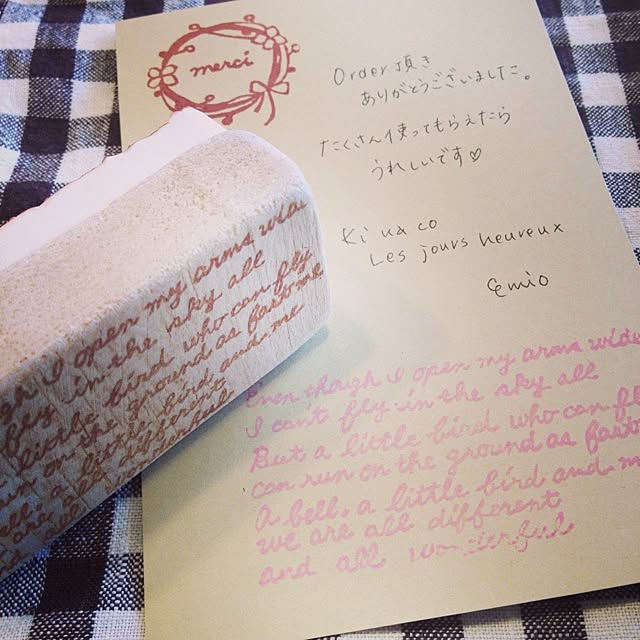 merci
Order頂き
ありがとうございました。
たくさん使ってもらえたら
うれしいです♡
Kinaco
Les jours heureux
emio
Even though I open my arms wide
I can't fly in the sky all
But a little bird who can fl
can run on the ground as fast
A bell, a little bird and m
we are all different
and all wonderful
gh I open my arms wide
fly in the sky all
little bird who can fly
un on the ground as fast o me
a little bird and me
all different
wonderful